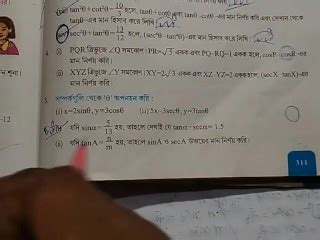 (x) tan²θ+cot²θ=10/3 হলে, tanθ+cotθ-এর মান নির্ণয় করি এবং সেখান থেকে
tanθ-এর মান হিসাব করে লিখি।
sec²θ+tan²θ=13/12 হলে, (sec⁴θ-tan⁴θ)-এর মান হিসাব করে লিখি।
4. (i) PQR ত্রিভুজে ∠Q সমকোণ। PR=√5 একক এবং PQ-RQ=1 একক হলে, cosP-cosR-এর
মান নির্ণয় করি।
(ii) XYZ ত্রিভুজে ∠Y সমকোণ। XY=2√3 একক এবং XZ-YZ=2 একক হলে, (secX-tanX)-এর
মান নির্ণয় করি।
5. সম্পর্কগুলি থেকে 'θ' অপনয়ন করি :
(i) x=2sinθ, y=3cosθ (ii) 5x=3secθ, y=3tanθ
6. (i) যদি sinα=5/13 হয়, তাহলে দেখাই যে tanα+secα=1.5
(ii) যদি tanA=n/m হয়, তাহলে sinA ও secA উভয়ের মান নির্ণয় করি।
311